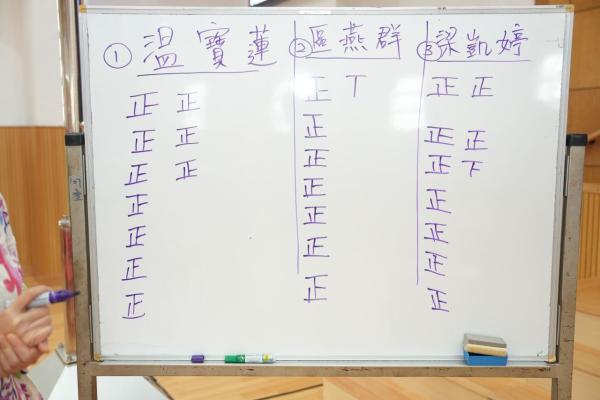 ① 溫寶蓮 ② 區燕群 ③ 梁凱婷
正 正 正 丅 正 正
正 正 正 正 正
正 正 正 正 下
正 正 正
正 正 正
正 正 正
正 正 正